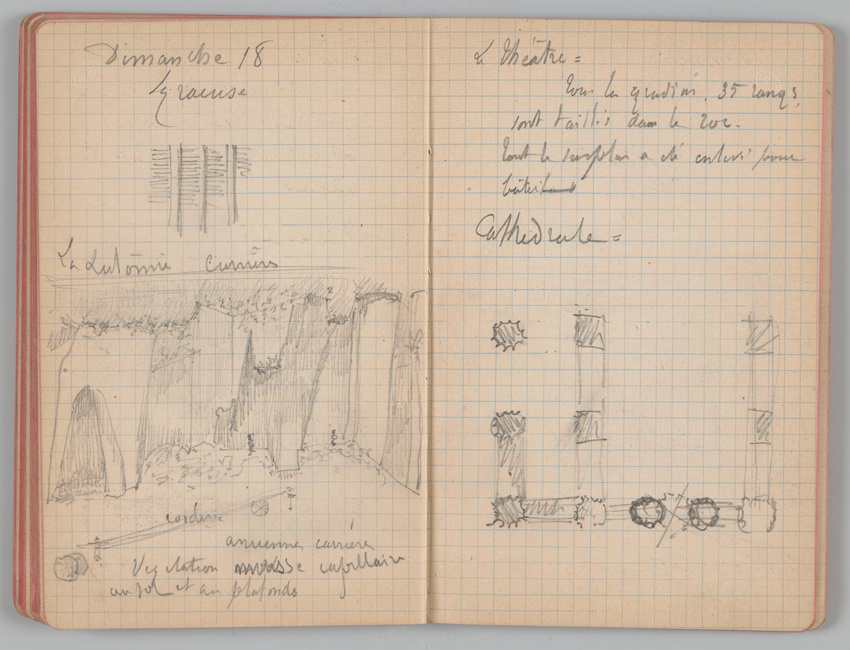 Dimanche 18
Syracuse
La Latomie carrières
corderie
ancienne carrière
Vegetation mousse capillaire
au sol et au plafonds
Le Théâtre =
Tous les gradins, 35 rangs,
sont taillés dans le roc.
Tout le surplus a été enlevé pour
bâtir
Cathédrale =